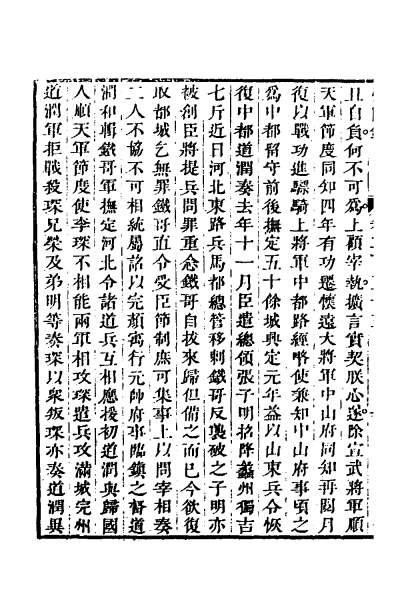 且自負何不可爲上顧宰執攜言實契朕心遂除宣武將軍順
天軍節度同知四年有功遷懷遠大將軍中山府同知再閱月
復以戰功進驃騎上將軍中都路經略使兼知中山府事頃之
爲中都留守前後撫定五十餘城興定元年益以山東兵令恢
復中都道潤奏去年十一月臣遣總領張子明招降蠡州獨吉
七斤近日河北東路兵馬都總管移剌鐵哥反襲破之子明亦
被創臣將提兵問罪重念鐵哥自拔來歸但備之而已今欲復
取都城乞無罪鐵哥直令受臣節制庶可集事上以問宰相奏
二人不協不可相統屬詔以完顏寓行元帥府事臨鎮之督道
潤和輯鐵哥軍撫定河北令諸道兵互相應援初道潤與歸國
人順天軍節度使李琛不相能兩軍相攻琛遣兵攻滿城完州
道潤軍拒戰殺琛兄榮及弟明等奏琛以衆叛琛亦奏道潤與